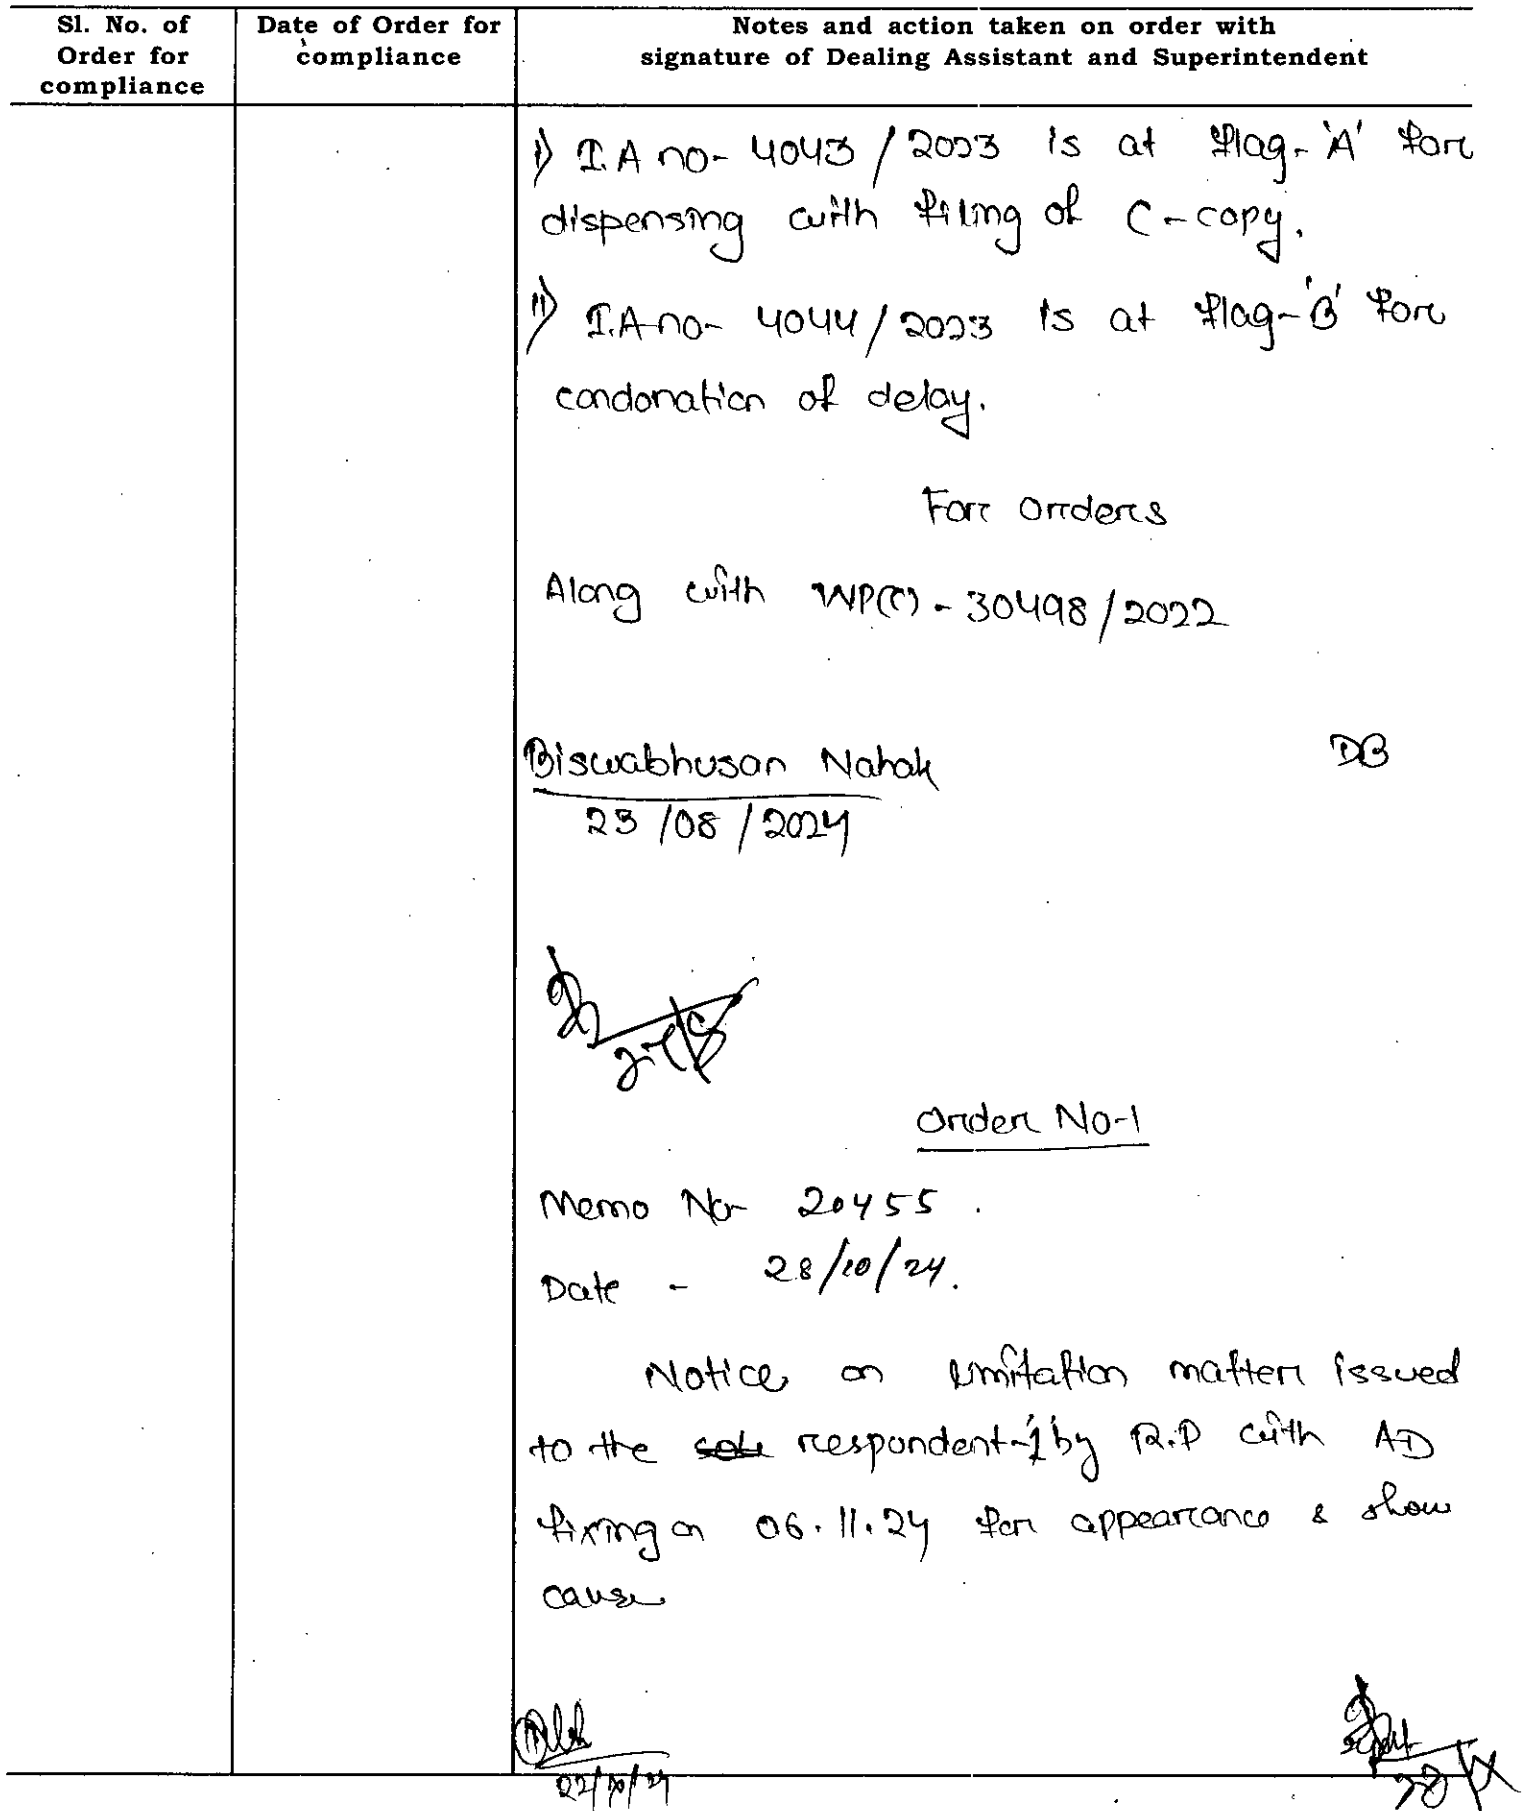 Sl. No. of
Order for
compliance
Date of Order for
compliance
Notes and action taken on order with
signature of Dealing Assistant and Superintendent
i) I.A no- 4043/2023 is at flag-'A' for
dispensing with filing of C-copy.
ii) I.A no- 4044/2023 is at flag-'B' for
condonation of delay.
For orders
Along with WP(C) - 30498/2022
Biswabhusan Nahak
DB
23/08/2024
Order No-1
Memo No- 20455.
Date - 28/10/24.
Notice on limitation matter issued
to the sole respondent-'1' by R.P with AD
fixing on 06.11.24 for appearance & show
cause
22/10/24